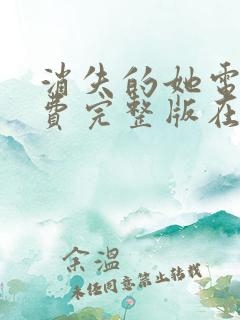 消失的她电
费完整版在
余温
未经同意禁止转载